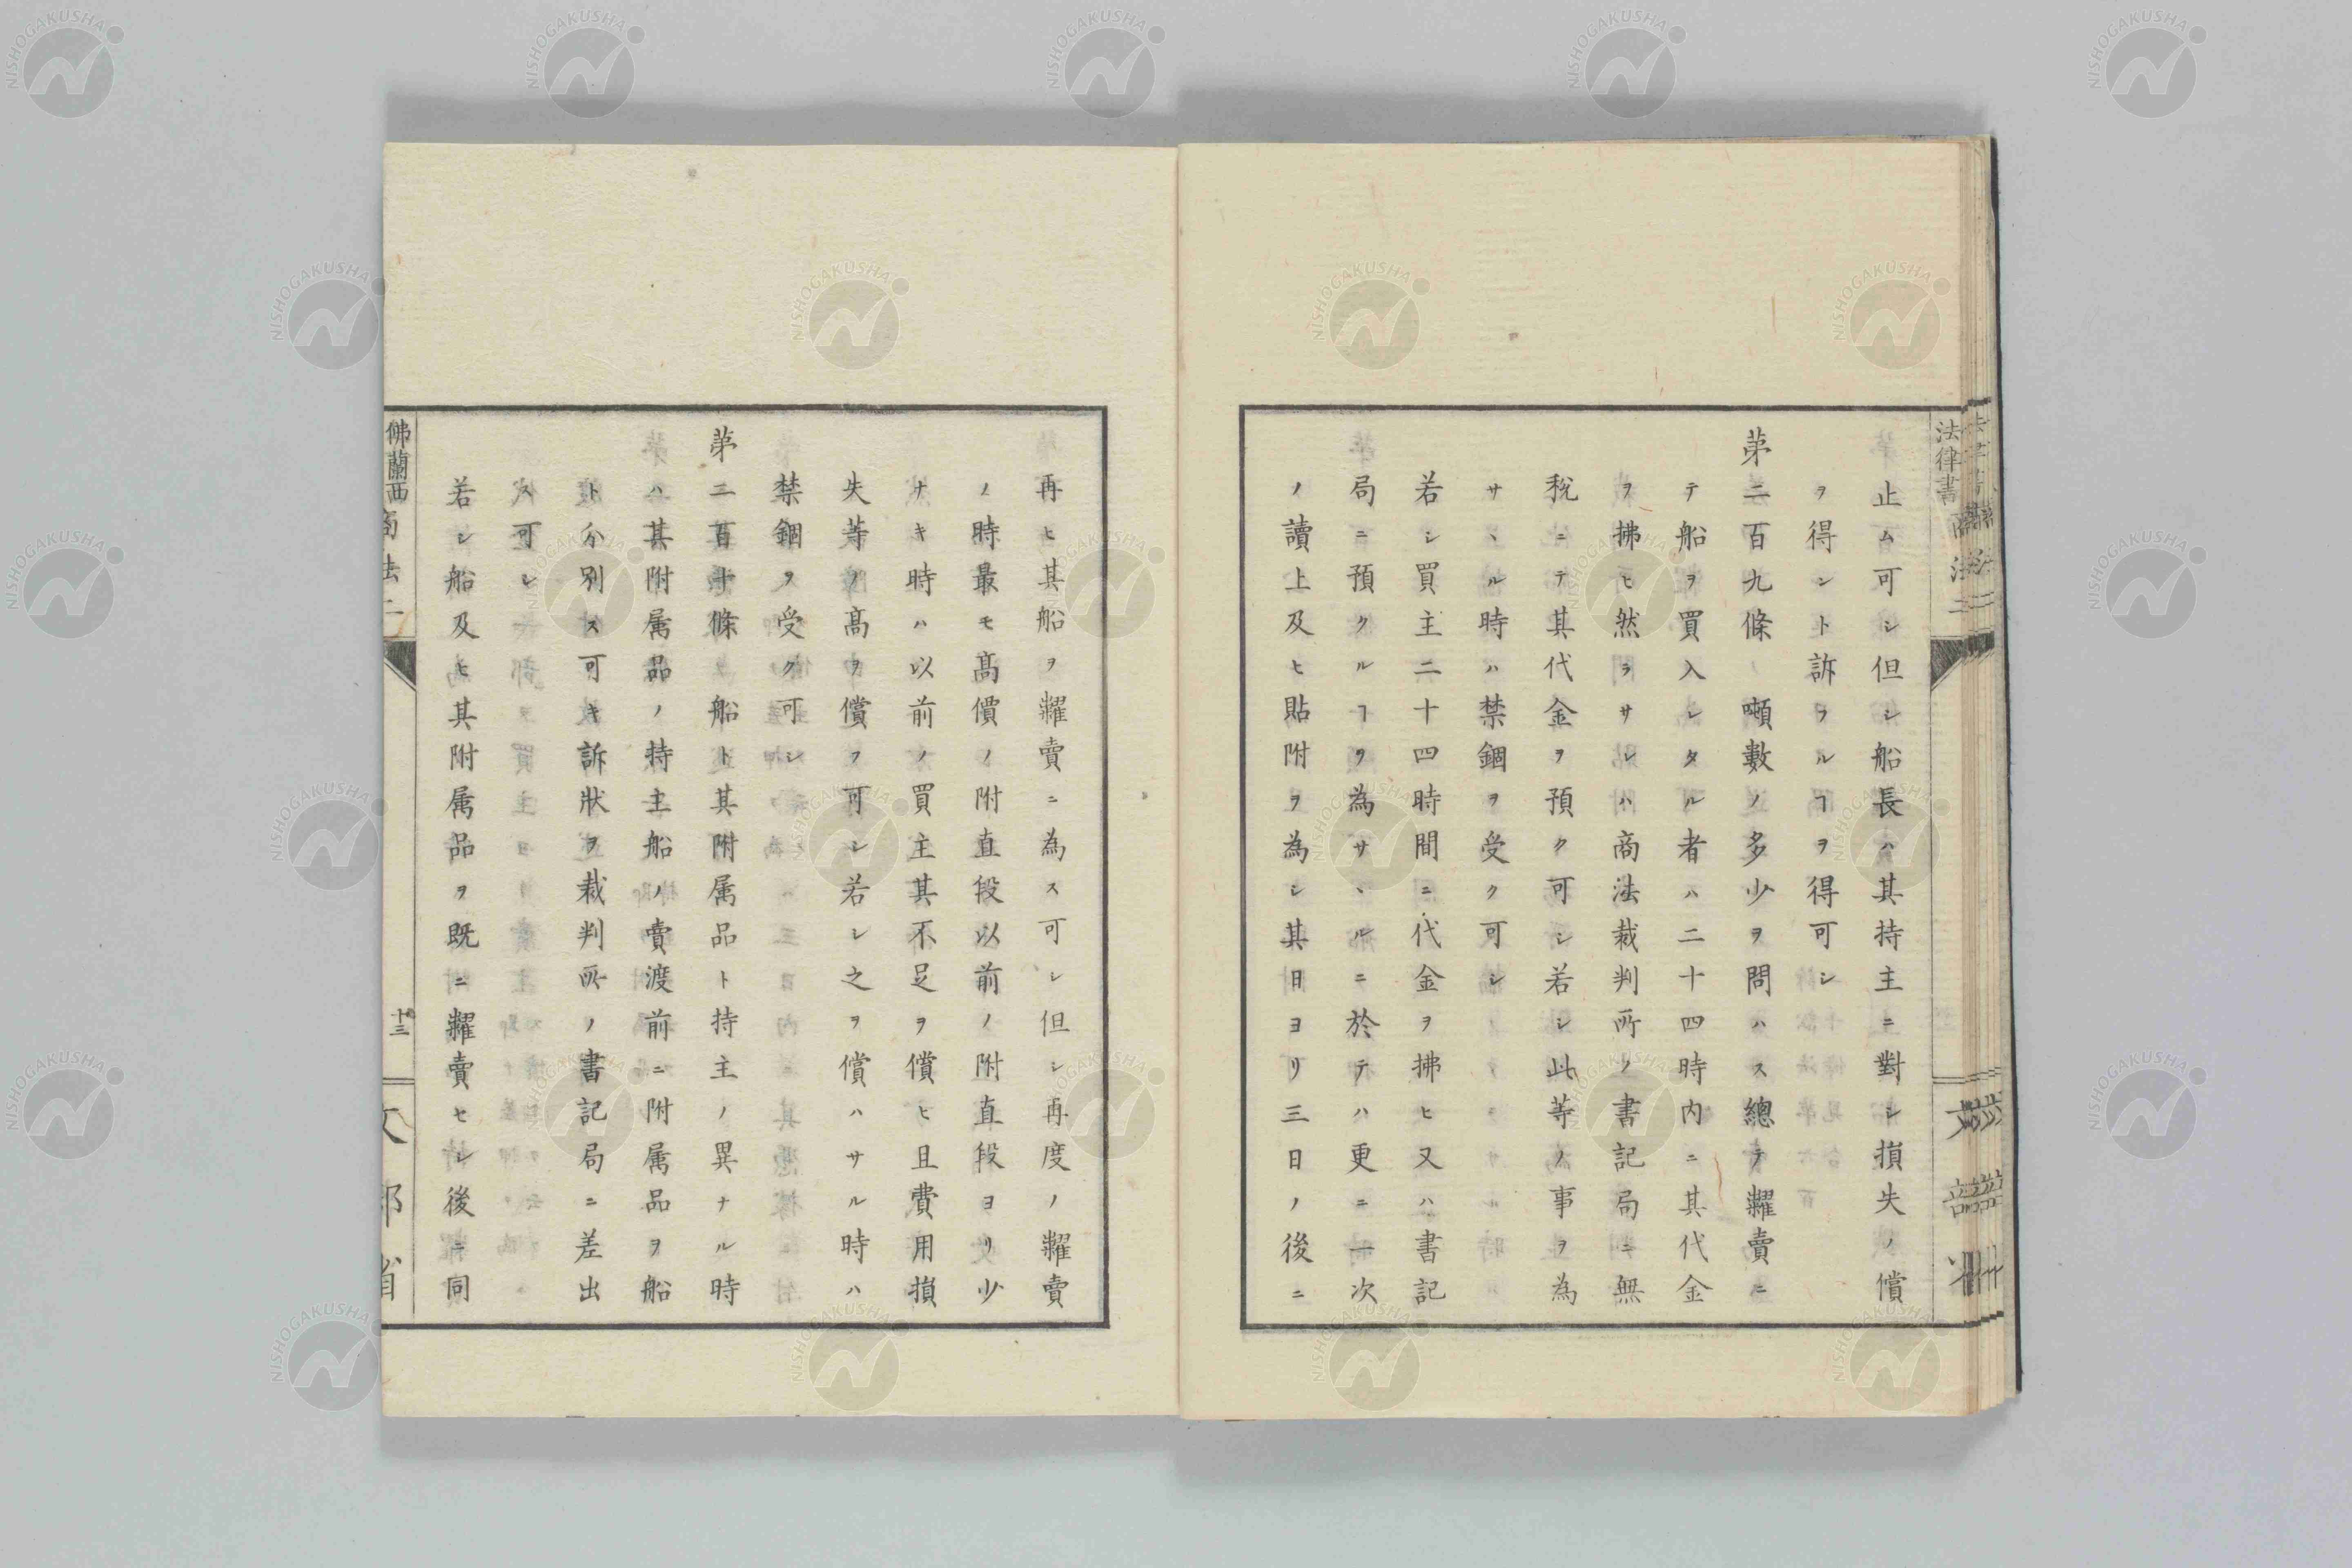 止ム可シ但シ船長ハ其持主ニ對シ損失ノ償
ヲ得ント訴フルヿヲ得可シ
苐二百九條 噸數ノ多少ヲ問ハス總テ糶賣ニ
テ船ヲ買入レタル者ハ二十四時内ニ其代金
ヲ拂ヒ然ラサレハ商法裁判所ノ書記局ニ無
税ニテ其代金ヲ預ク可シ若シ此等ノ事ヲ為
サヽル時ハ禁錮ヲ受ク可シ
若シ買主二十四時間ニ代金ヲ拂ヒ又ハ書記
局ニ預クルヿヲ為サヽルニ於テハ更ニ一次
ノ讀上及ヒ貼附ヲ為シ其日ヨリ三日ノ後ニ
再ヒ其船ヲ糶賣ニ為ス可シ但シ再度ノ糶賣
ノ時最モ高價ノ附直段以前ノ附直段ヨリ少
ナキ時ハ以前ノ買主其不足ヲ償ヒ且費用損
失等ノ高ヲ償フ可シ若シ之ヲ償ハサル時ハ
禁錮ヲ受ク可シ
苐二百十條 船ト其附属品ト持主ノ異ナル時
ハ其附属品ノ持主船ノ賣渡前ニ附属品ヲ船
ト分別ス可キ訴狀ヲ裁判所ノ書記局ニ差出
ス可シ
若シ船及ヒ其附属品ヲ既ニ糶賣セシ後ニ同
佛蘭西商法二
十三
文部省
法律書